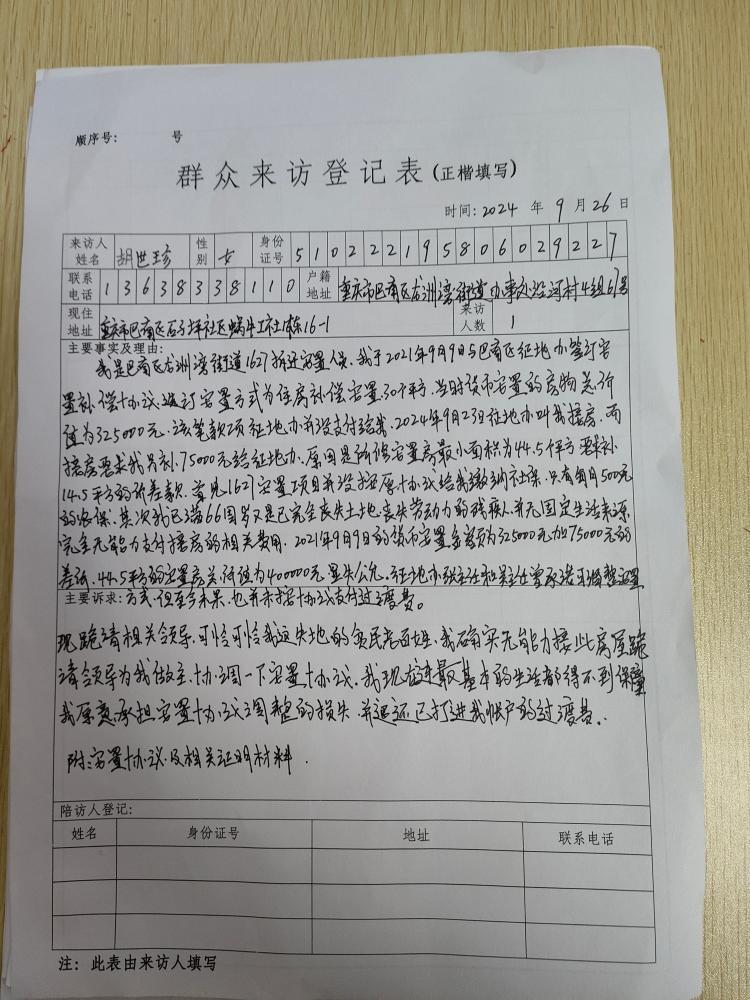 顺序号： 号
群众来访登记表(正楷填写)
时间：2024 年 9 月 26 日
来访人姓名 胡世珍 性别 女 身份证号 510222195806029227
联系电话 13638338110 户籍地址 重庆市巴南区龙洲湾街道办事处沿河村4组67号
现住地址 重庆市巴南区石子坪社区蜗牛工社1栋16-1 来访人数 1
主要事实及理由：
我是巴南区龙洲湾街道1627拆迁安置人员。我于2021年9月9日与巴南区征地办签订安
置补偿协议。议订安置方式为住房补偿安置30个平方，当时货币安置的房物总价
值为325000元。该笔款项征地办并没支付给我。2024年9月23日征地办叫我接房。而
接房要求我另补75000元给征地办。原因是所修安置房最小面积为44.5个平方要求补
14.5平方的价差款。首先1627安置项目并没按原协议给我缴纳社保。只有每月500元
的农保。其次我已满66周岁又是已完全丧失土地丧失劳动力的残疾人。并无固定生活来源
完全无能力支付接房的相关费用。2021年9月9日的货币安置金额为325000元加75000元的
差价。44.5平方的安置房总价值为400000元显失公允。征地办张主任和主任曾承诺可调整安置
主要诉求：方式。但至今未果，也并未按协议支付过渡费。
现跪请相关领导，可怜可怜我这失地的贫民老百姓，我确实无能力接此房屋跪
请领导为我做主。协调一下安置协议。我现在连最基本的生活都得不到保障
我愿意承担安置协议调整的损失。并退还已打进我帐户的过渡费。
附：安置协议及相关证明材料.
陪访人登记：
姓名 身份证号 地址 联系电话
注：此表由来访人填写